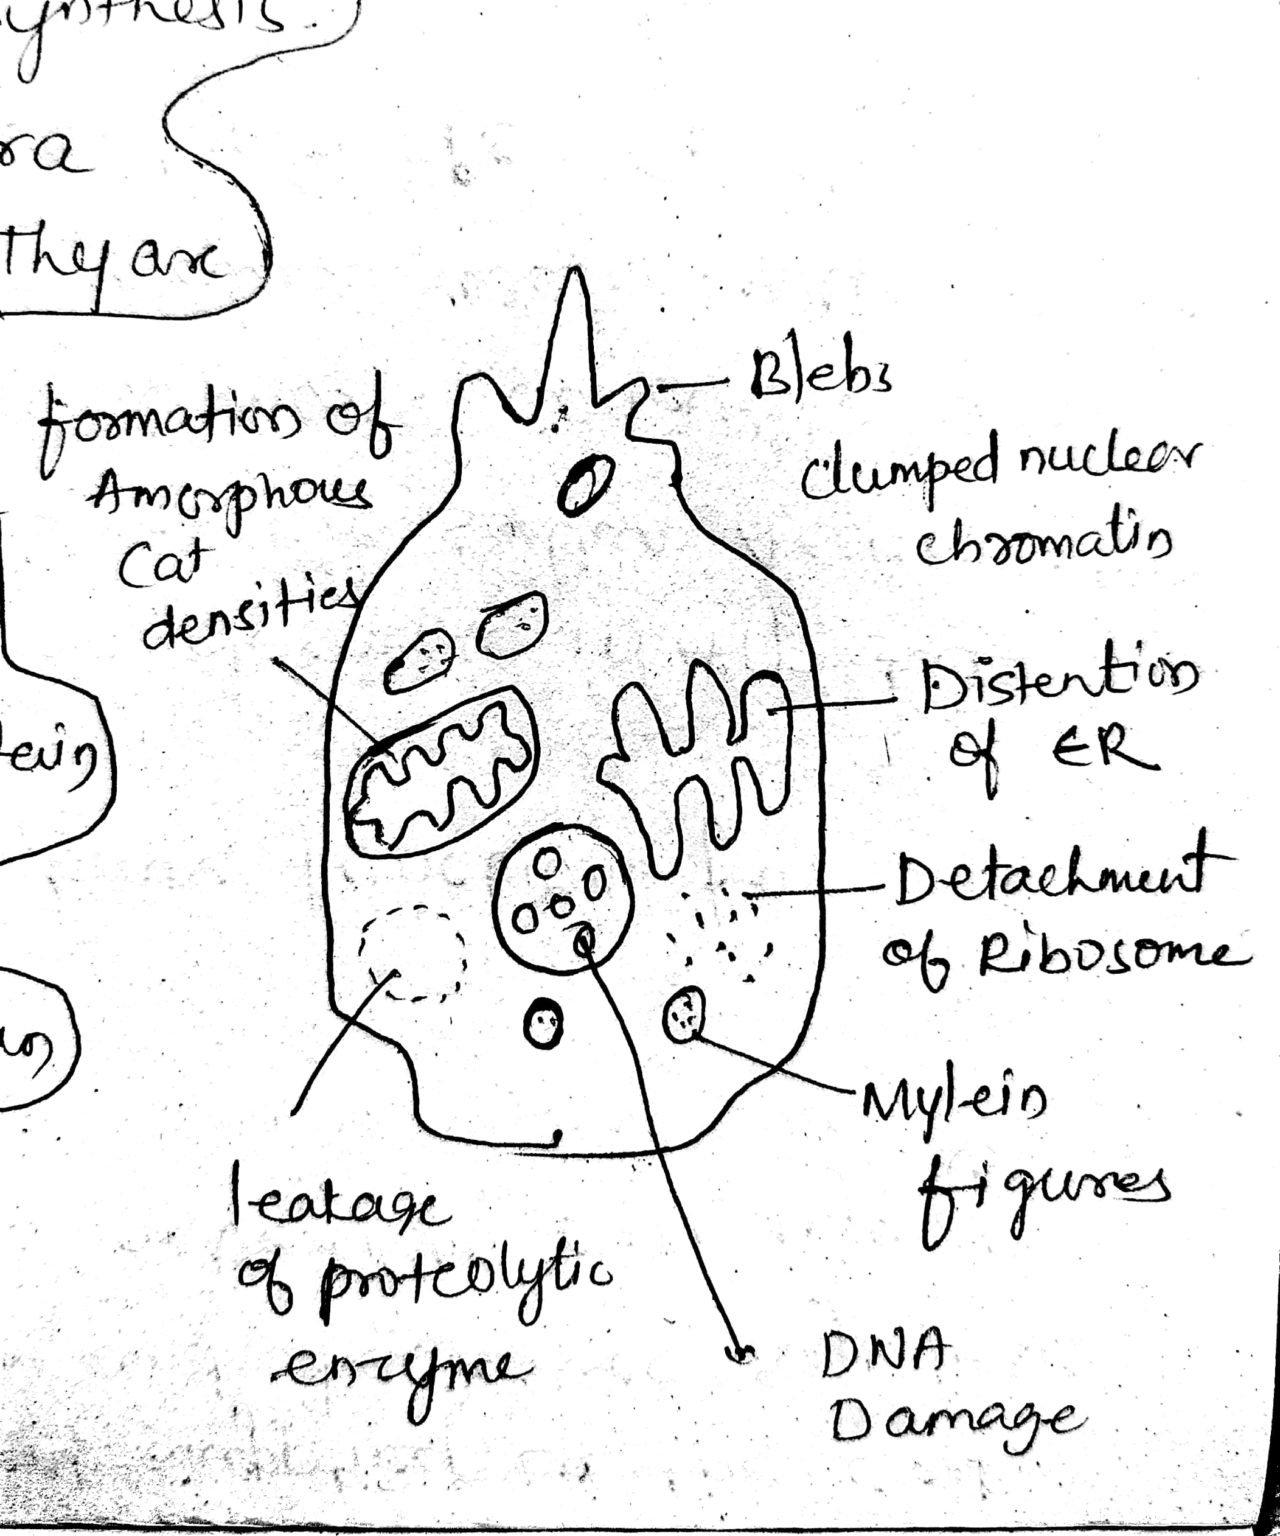 ynthesis.
ra
they are
formation of
Amorphous
Cat
densities
Blebs
Clumped nuclear
chromatin
Distention
of ER
Detachment
of Ribosome
Mylein
figures
leakage
of proteolytic
enzyme
DNA
Damage
tein